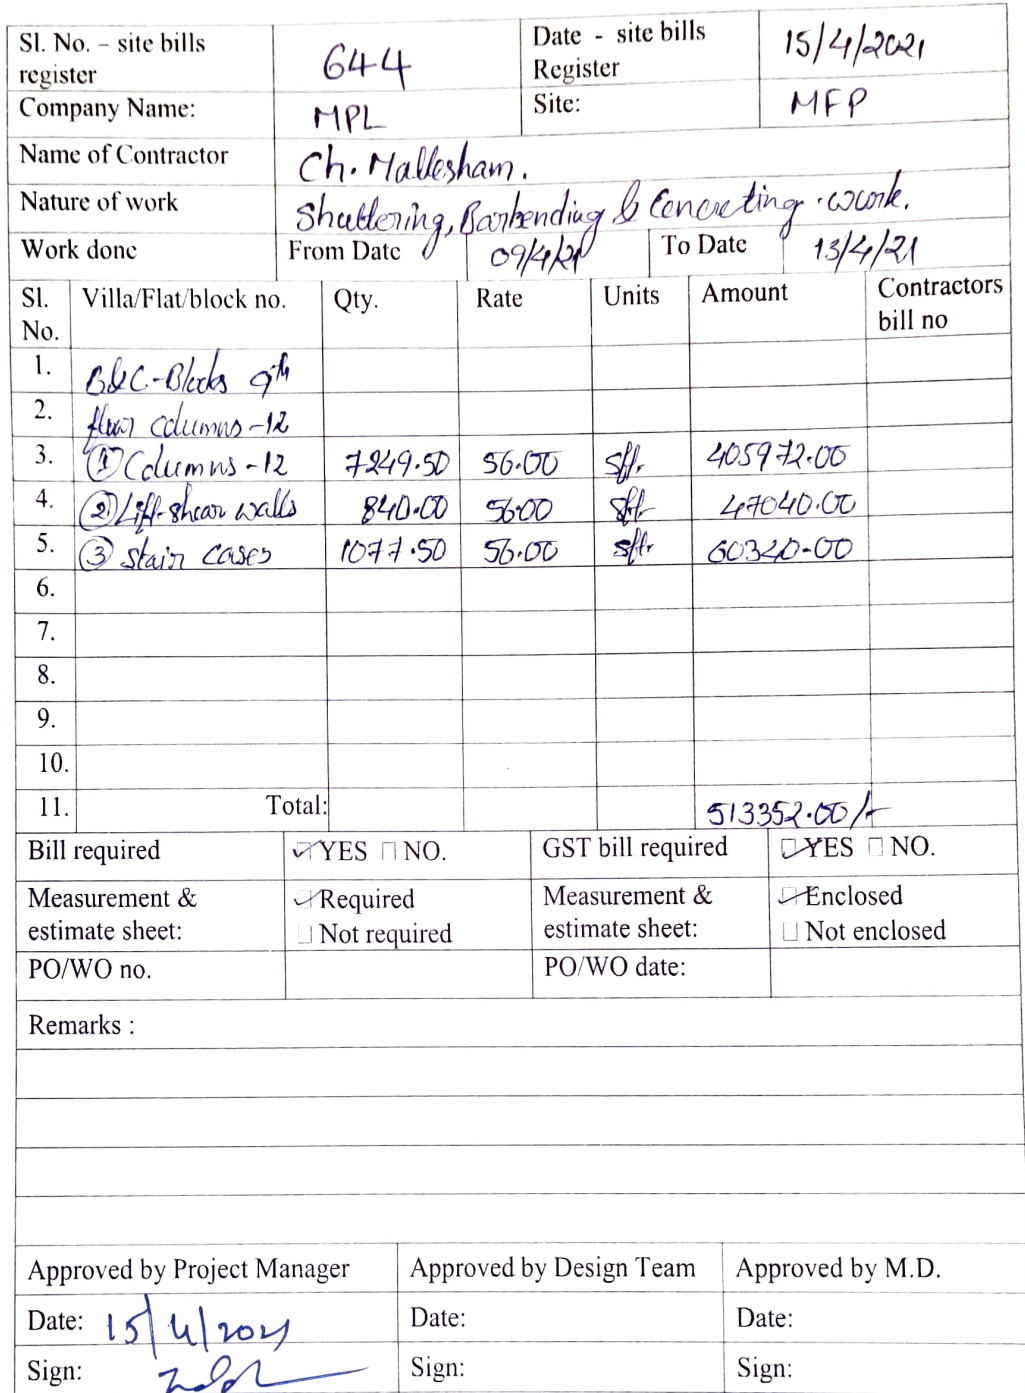 Sl. No. – site bills register 644 Date - site bills Register 15/4/2021
Company Name: MPL Site: MFP
Name of Contractor Ch. Mallesham.
Nature of work Shuttering, Barbending & Concreting work.
Work done From Date 09/4/21 To Date 13/4/21
Sl. No. Villa/Flat/block no. Qty. Rate Units Amount Contractors bill no
1. B&C-Blocks 9th
2. floor columns-12
3. ① Columns-12 7249.50 56.00 sft. 405972.00
4. ② Lift-shear walls 840.00 56.00 sft. 47040.00
5. ③ Stair cases 1077.50 56.00 sft. 60340.00
6.
7.
8.
9.
10.
11. Total: 513352.00/-
Bill required ☑ YES ☐ NO. GST bill required ☑ YES ☐ NO.
Measurement & estimate sheet: ☑ Required ☐ Not required Measurement & estimate sheet: ☑ Enclosed ☐ Not enclosed
PO/WO no. PO/WO date:
Remarks :
Approved by Project Manager Approved by Design Team Approved by M.D.
Date: 15/4/2021 Date: Date:
Sign: Sign: Sign: